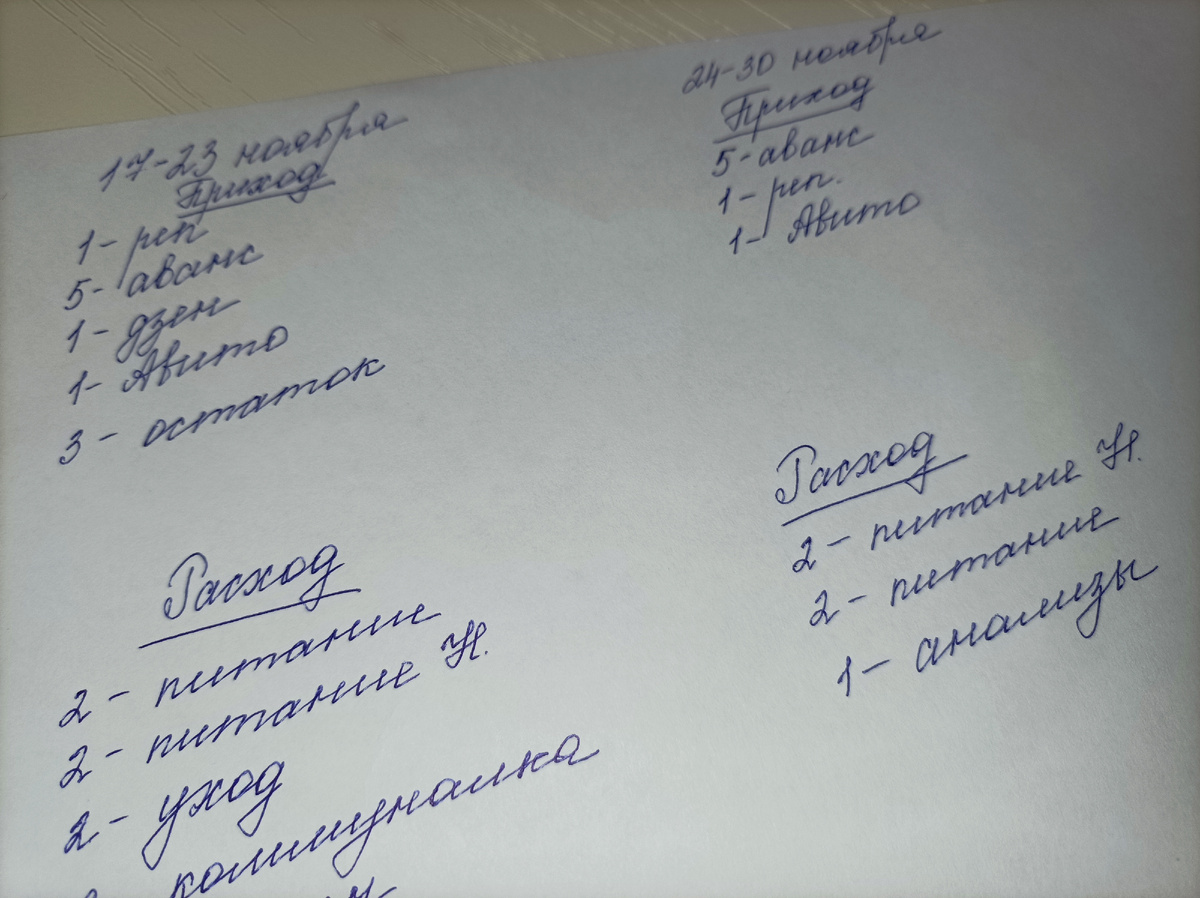 17-23 ноября
Приход
1- реп
5- аванс
1- дзен
1- Авито
3- остаток
Расход
2- питание
2- питание Н.
2- уход
коммуналка
24-30 ноября
Приход
5- аванс
1- реп.
1- Авито
Расход
2- питание Н.
2- питание
1- анализы